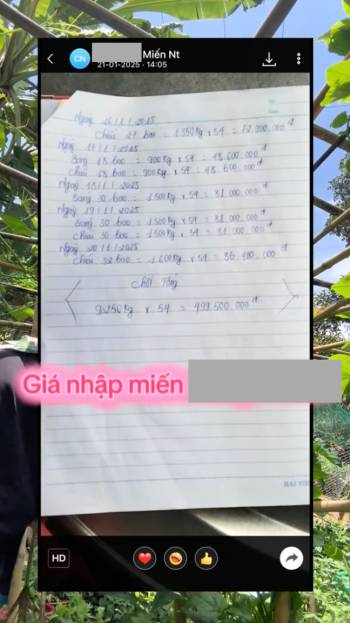 CN
Miến Nt
21-01-2025 · 14:05
Ngày 16/1/2025
Chiều 27 bao = 1350kg × 54 = 72.900.000đ
Ngày 17/1/2025
Sáng 18 bao = 900kg × 54 = 48.600.000đ
Chiều 18 bao = 900kg × 54 = 48.600.000đ
Ngày 18/1/2025
Sáng 30 bao = 1500kg × 54 = 81.000.000đ
Ngày 19/1/2025
Sáng 30 bao = 1500kg × 54 = 81.000.000đ
Chiều 30 bao = 1500kg × 54 = 81.000.000đ
Ngày 20/1/2025
Chiều 32 bao = 1600kg × 54 = 86.400.000đ
Chốt Tổng
9.250kg × 54 = 499.500.000đ
Giá nhập miến
HD